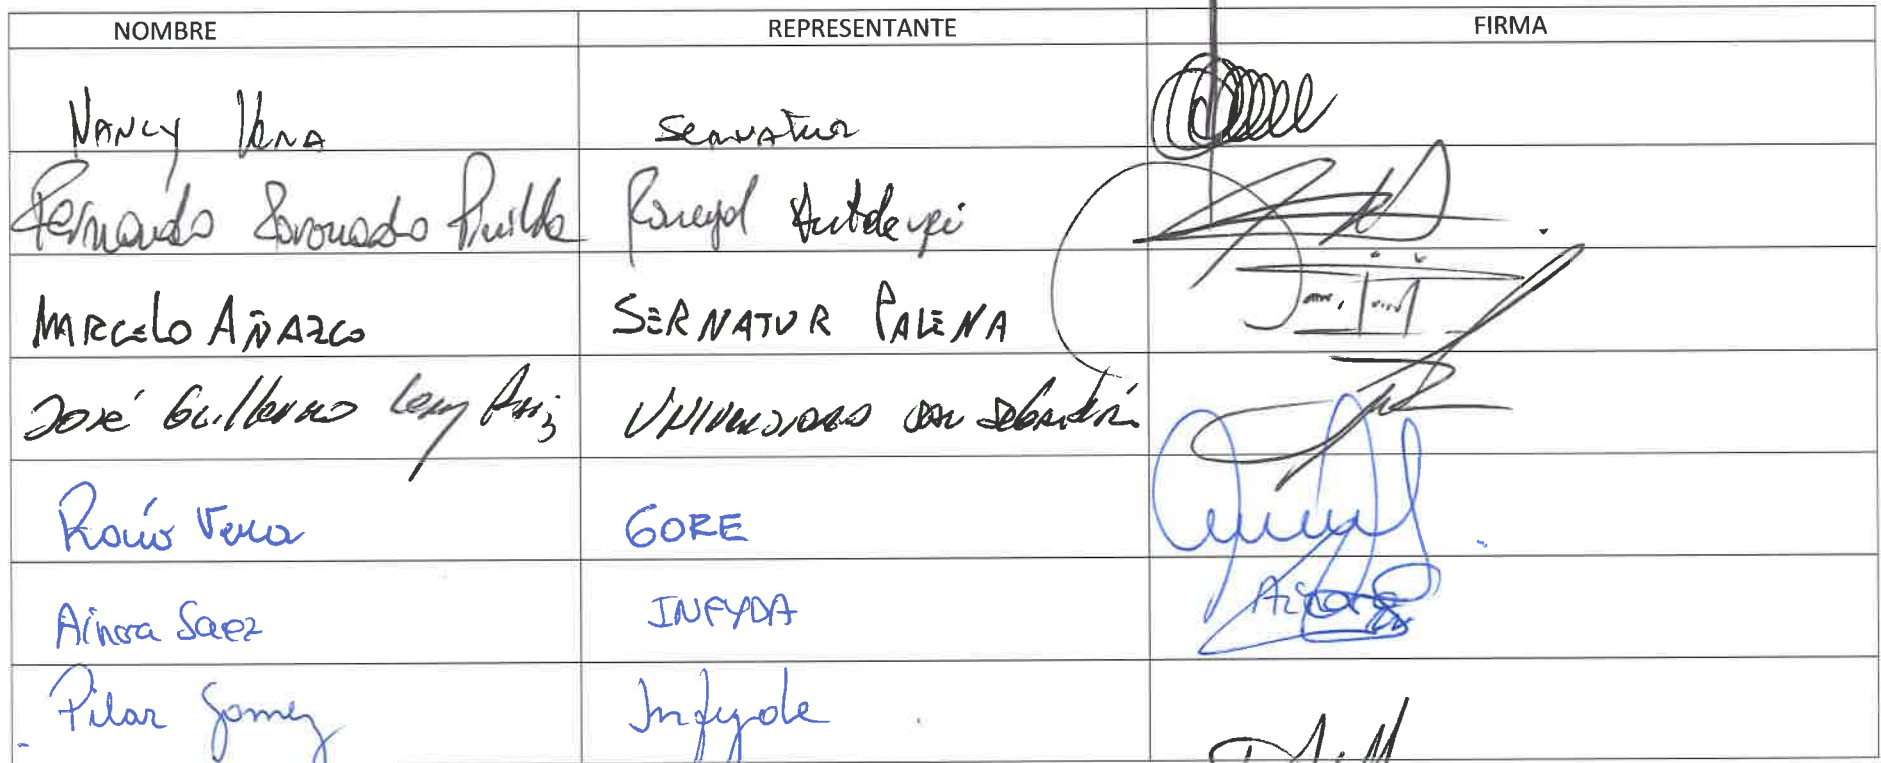 NOMBRE REPRESENTANTE FIRMA
NANCY Vera Sernatur
Fernando Coronado
MARCELO AÑAZCO SERNATUR PALENA
José Guillermo UNIVERSIDAD SAN SEBASTIÁN
Rocío Vera GORE
Ainoa Saez INFYDA Ainoa
Pilar Gomez Infyde